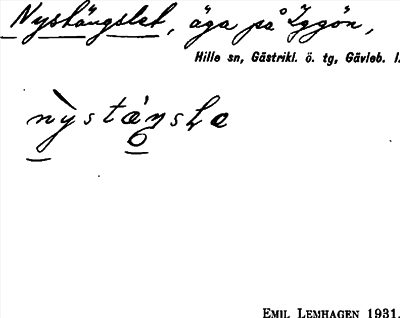 Nystängslet, äga på Iggön,
Hille sn, Gästrikl. ö. tg, Gävleb. l.
EMIL LEMHAGEN 1931.